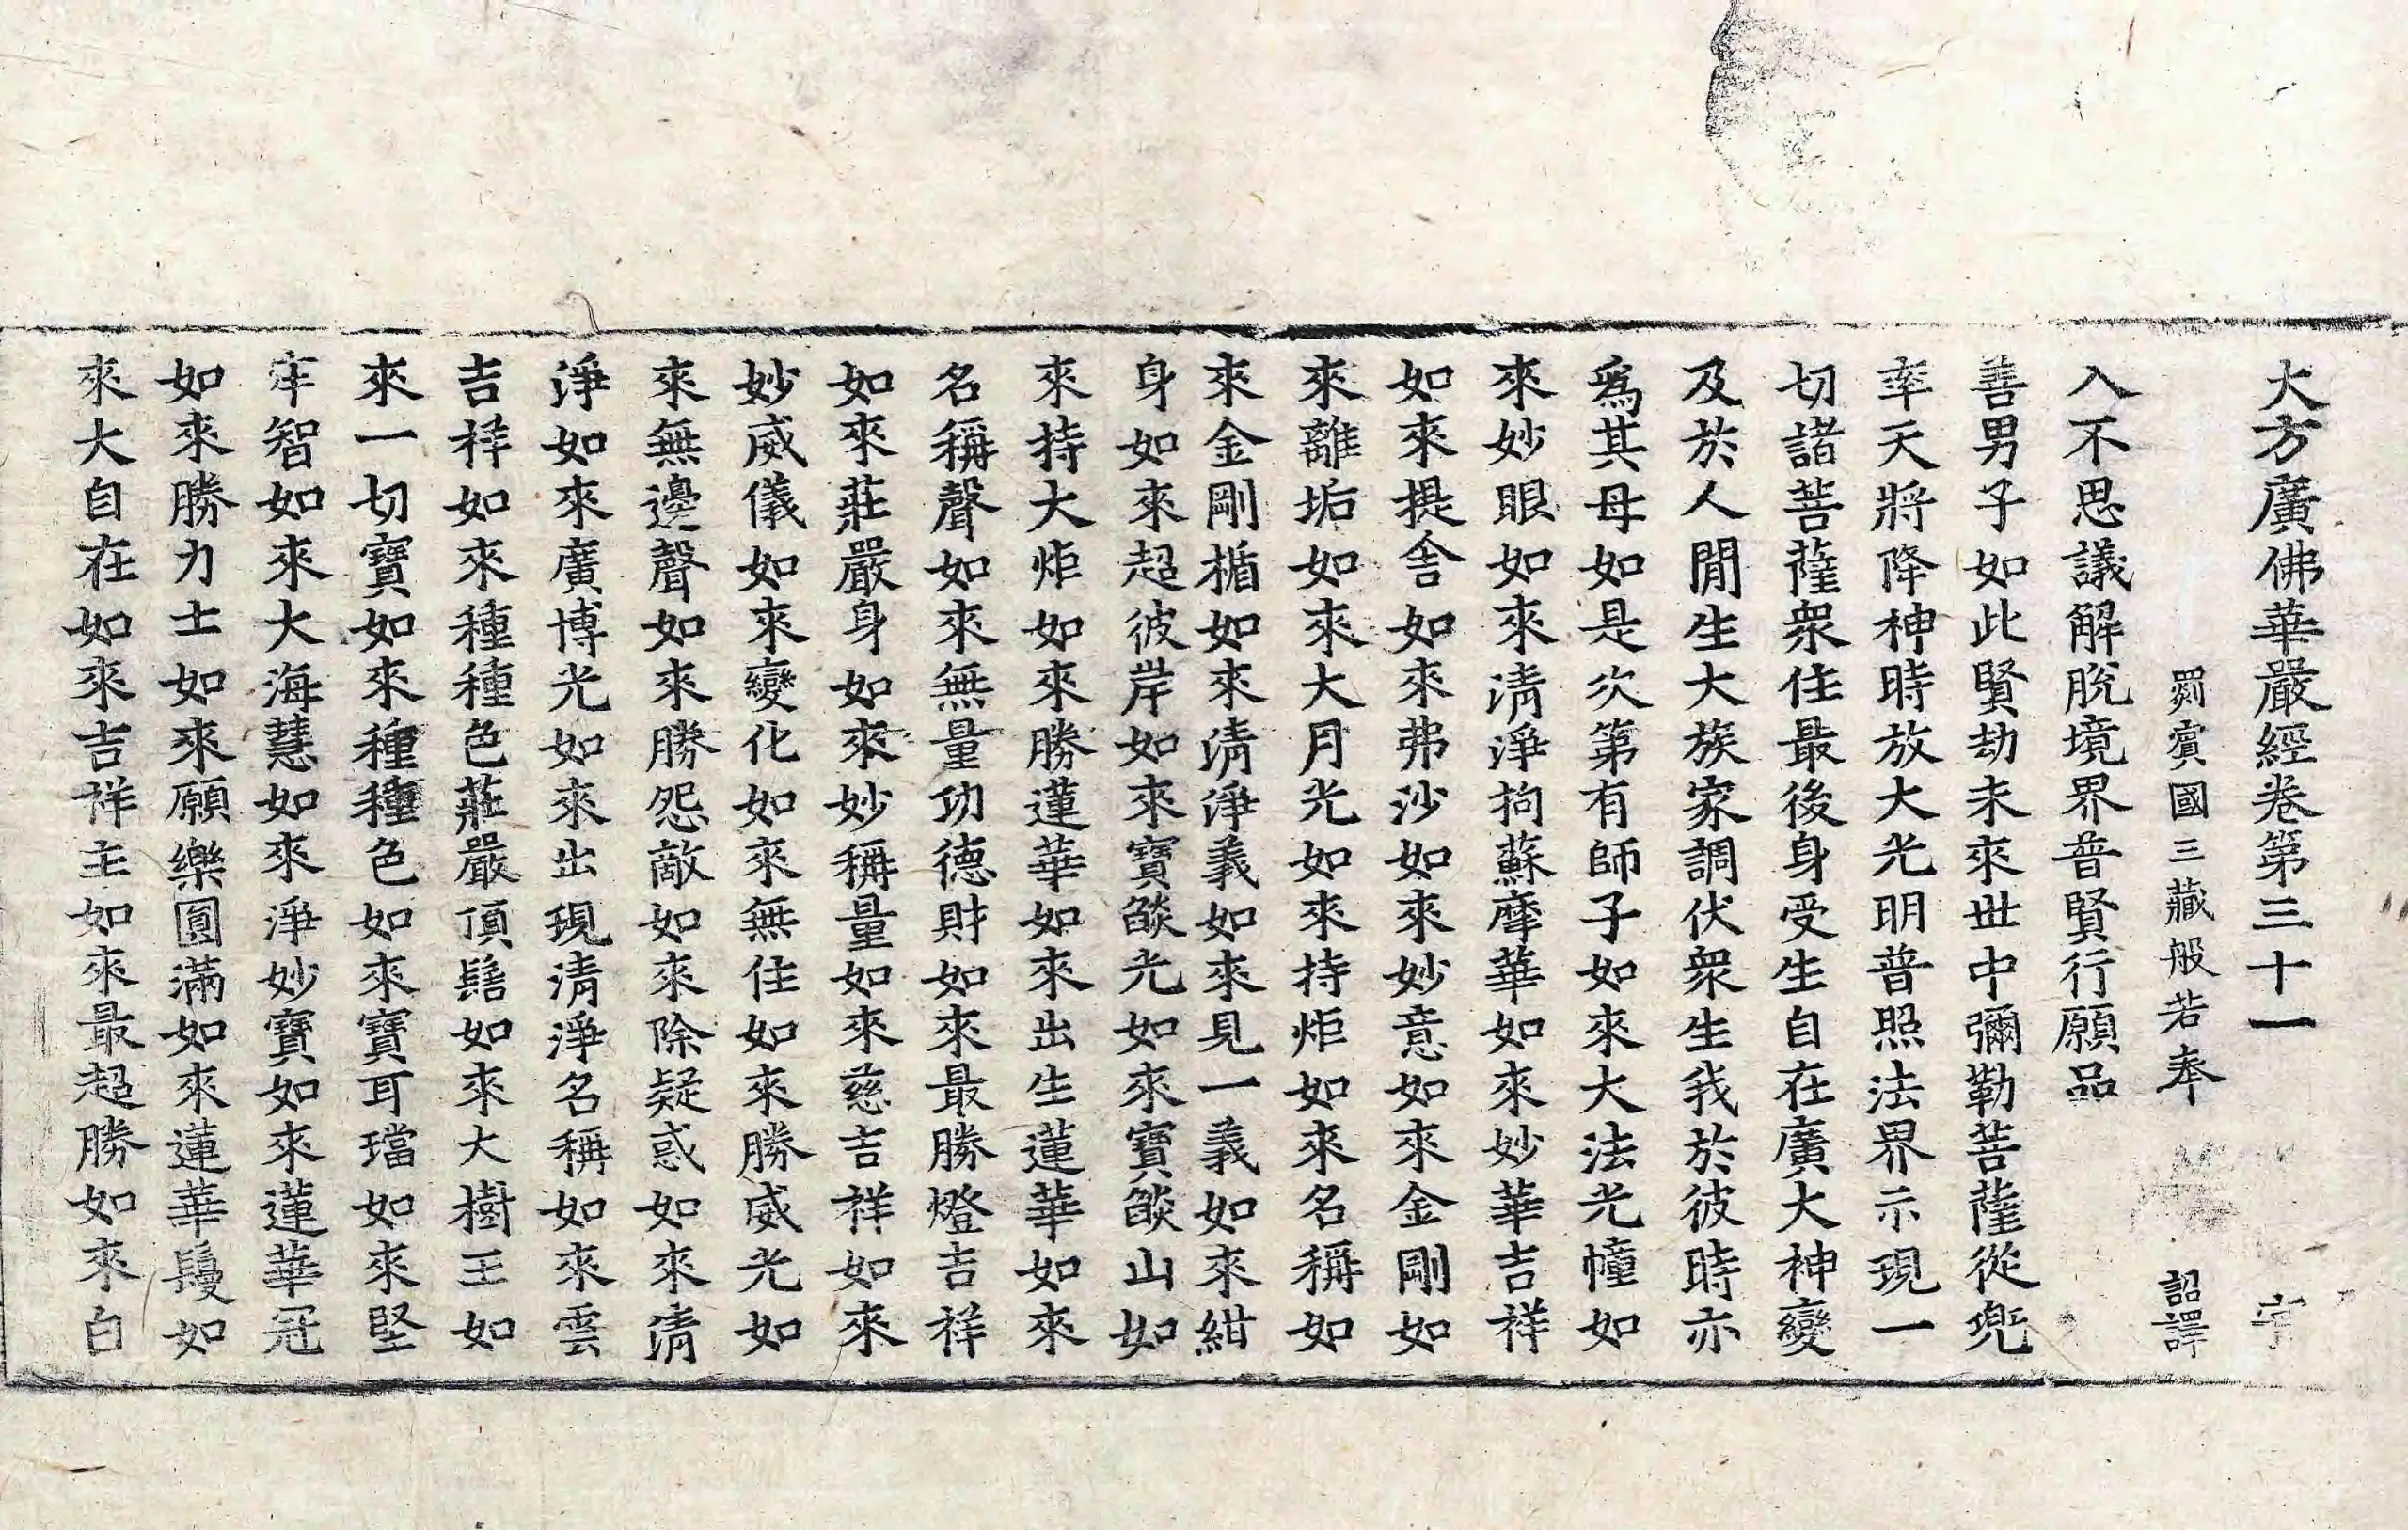 大方廣佛華嚴經卷第三十一
罽賓國三藏般若奉 詔譯
入不思議解脫境界普賢行願品
善男子如此賢劫未來世中彌勒菩薩從兜
率天將降神時放大光明普照法界示現一
切諸菩薩衆住最後身受生自在廣大神變
及於人閒生大族家調伏衆生我於彼時亦
爲其母如是次第有師子如來大法光幢如
來妙眼如來清淨拘蘇摩華如來妙華吉祥
如來提舍如來弗沙如來妙意如來金剛如
來離垢如來大月光如來持炬如來名稱如
來金剛楯如來清淨義如來見一義如來紺
身如來超彼岸如來寶燄光如來寶燄山如
來持大炬如來勝蓮華如來出生蓮華如來
名稱聲如來無量功德財如來最勝燈吉祥
如來莊嚴身如來妙稱量如來慈吉祥如來
妙威儀如來變化如來無住如來勝威光如
來無邊聲如來勝怨敵如來除疑惑如來清
淨如來廣博光如來出現清淨名稱如來雲
吉祥如來種種色莊嚴頂髻如來大樹王如
來一切寶如來種種色如來寶耳璫如來堅
牢智如來大海慧如來淨妙寶如來蓮華冠
如來勝力士如來願樂圓滿如來蓮華鬘如
來大自在如來吉祥主如來最超勝如來白